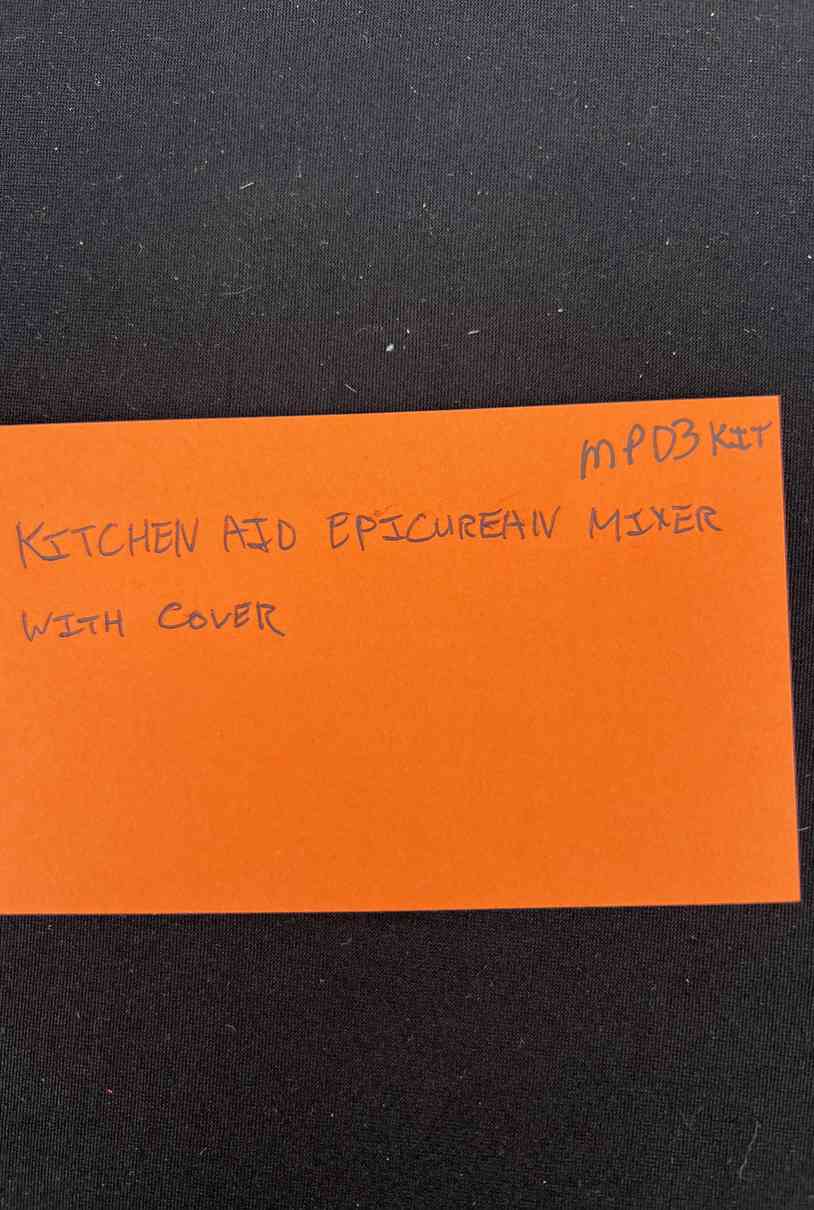 MPD3 KIT
KITCHEN AID EPICUREAN MIXER
WITH COVER